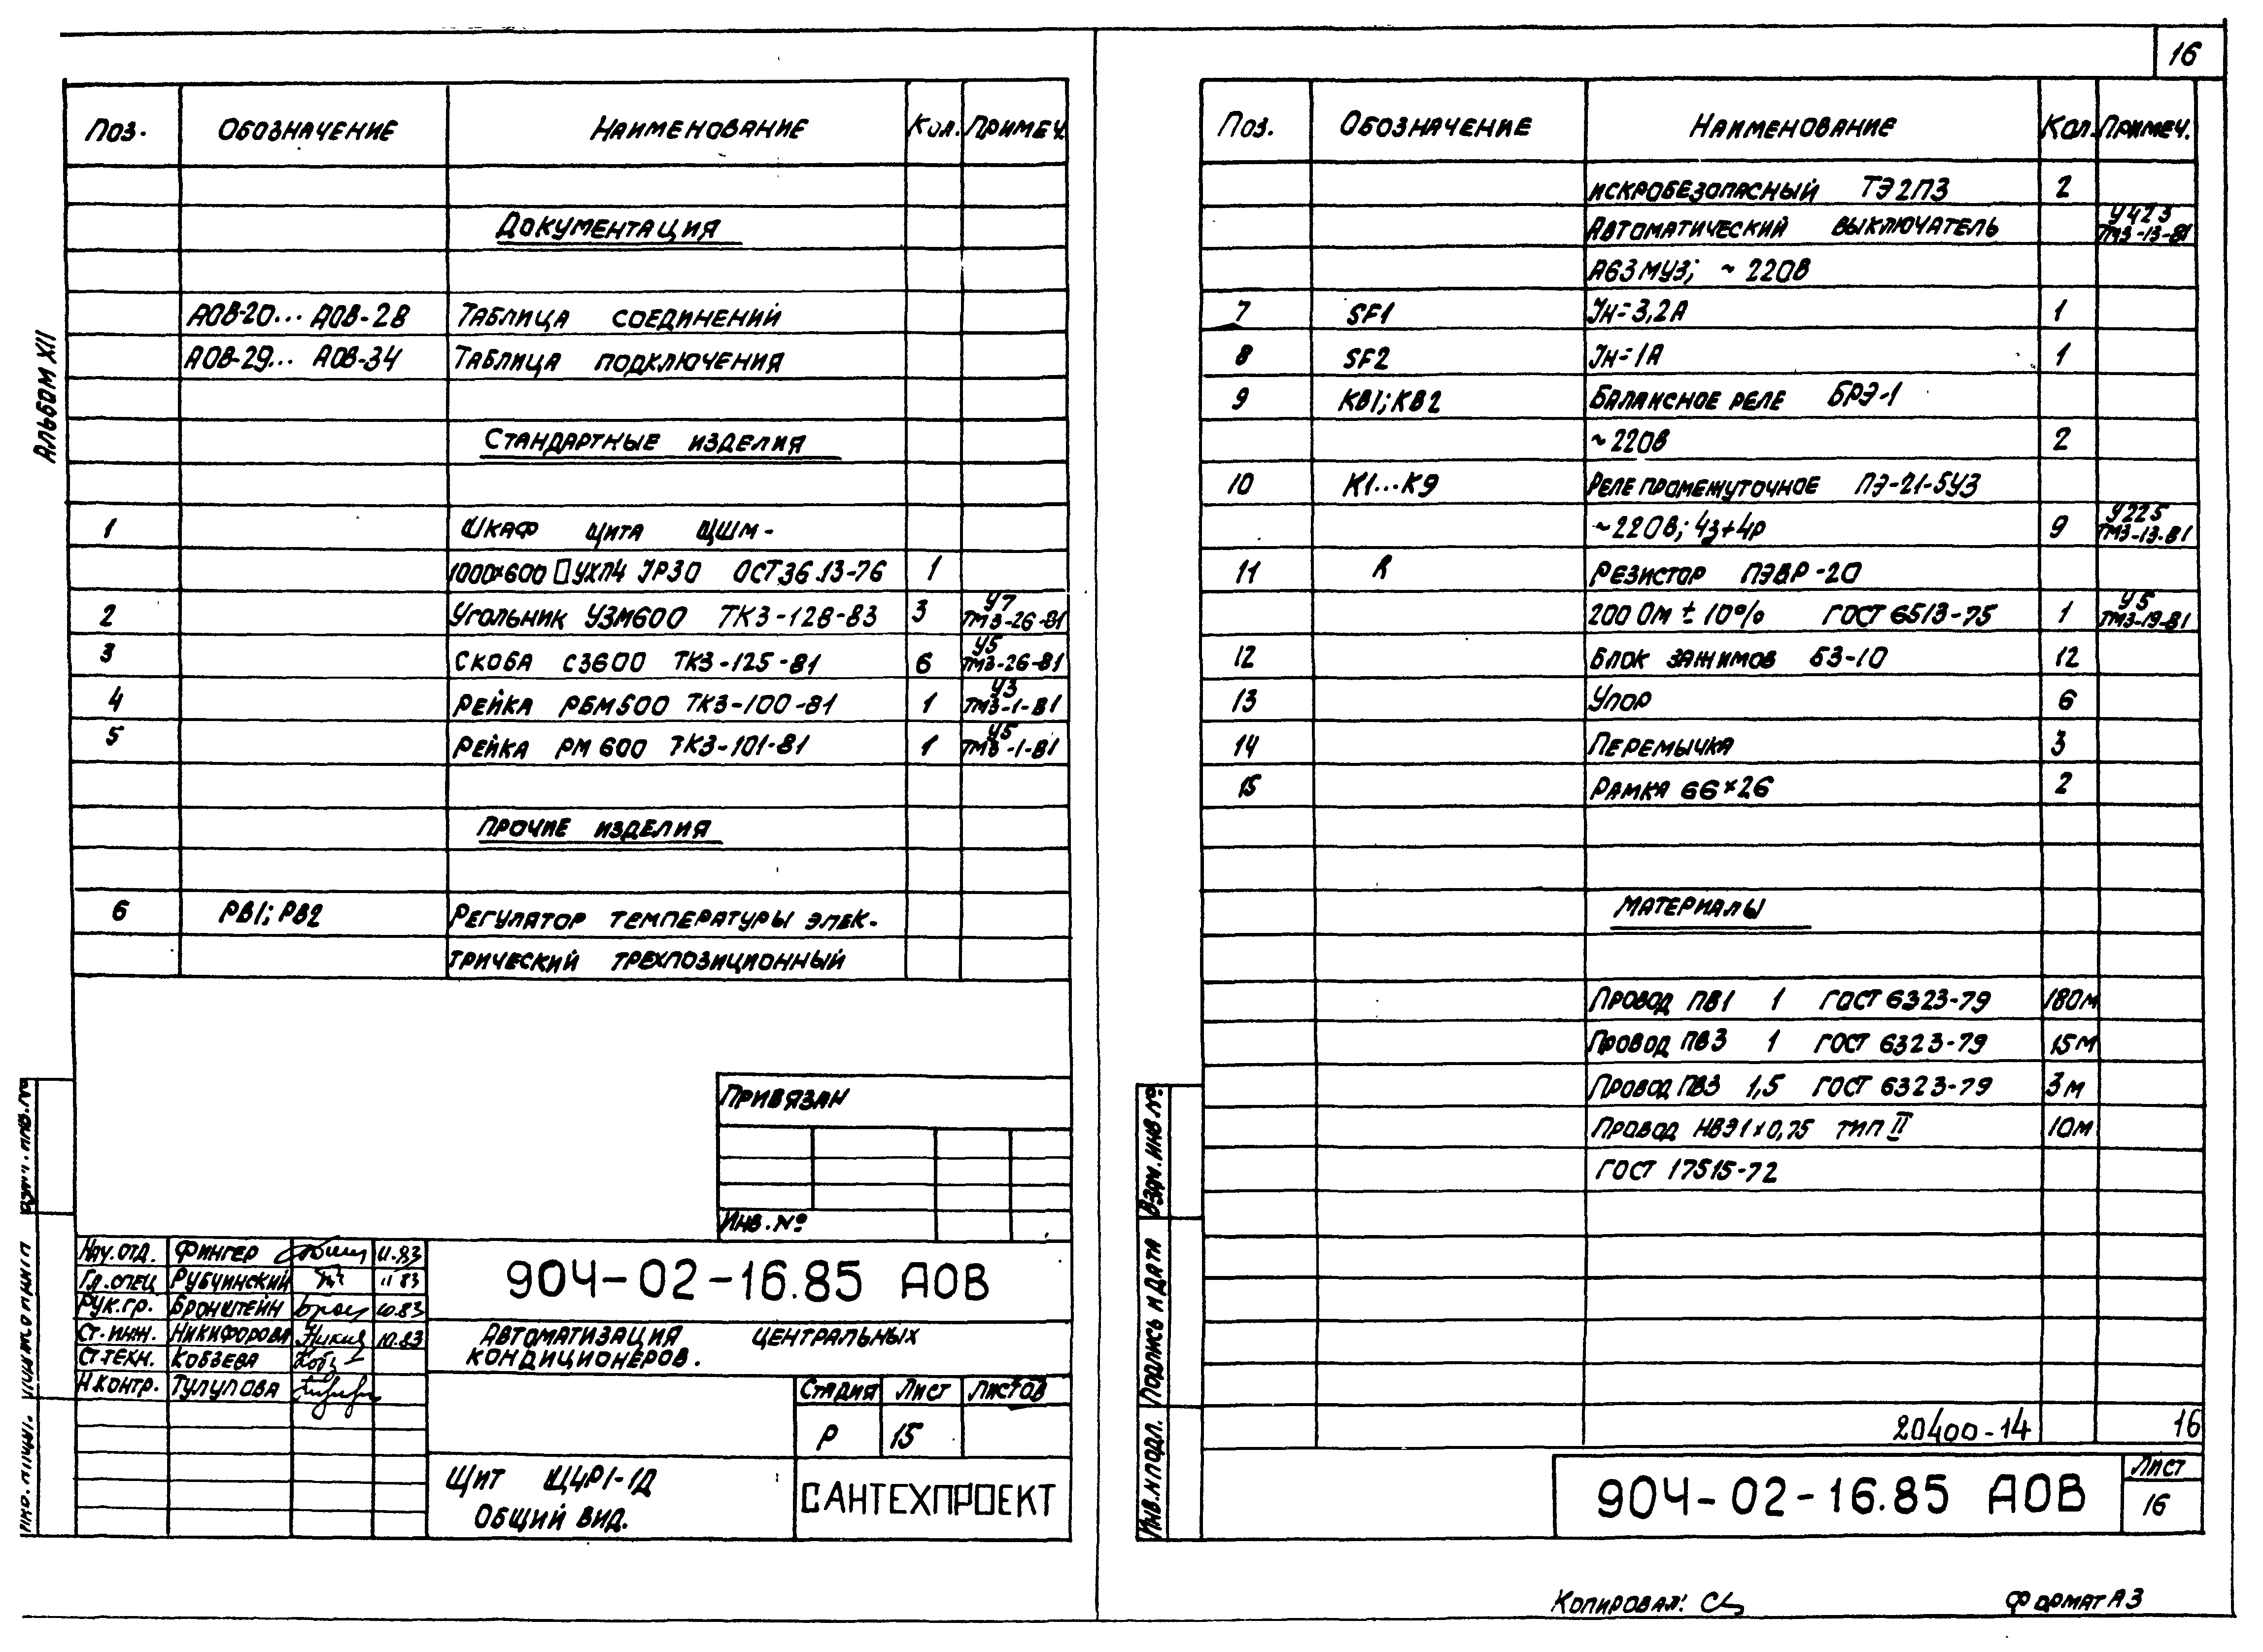 16
Альбом XII
Поз. Обозначение Наименование Кол. Примеч.
Документация
АОВ-20... АОВ-28 Таблица соединений
АОВ-29... АОВ-34 Таблица подключения
Стандартные изделия
1 Шкаф щита ЩШМ-
1000×600 УХЛ4 IP30 ОСТ36.13-76 1
2 Угольник УЗМ600 ТКЗ-128-83 3 У7 ТМ3-26-81
3 Скоба С3600 ТКЗ-125-81 6 У5 ТМ3-26-81
4 Рейка РБМ500 ТКЗ-100-81 1 У3 ТМ3-1-81
5 Рейка РМ600 ТКЗ-101-81 1 У5 ТМ3-1-81
Прочие изделия
6 РВ1; РВ2 Регулятор температуры элек-
трический трехпозиционный
Привязан
Инв. №
Нач. отд. Фингер 11.83
Гл. спец Рубчинский 11 83
Рук. гр. Бронштейн 10.83
Ст. инж. Никифорова 10.83
Ст. техн. Кобзева
Н. контр. Тулупова
904-02-16.85 АОВ
Автоматизация центральных
кондиционеров.
Стадия Лист Листов
Р 15
Щит Щ4Р1-1Д
Общий вид.
САНТЕХПРОЕКТ
Поз. Обозначение Наименование Кол. Примеч.
искробезопасный ТЭ2П3 2
Автоматический выключатель У423 ТМ3-13-81
А63МУ3; ~ 220В
7 SF1 Iн=3,2А 1
8 SF2 Iн=1А 1
9 КВ1; КВ2 Балансное реле БРЭ-1
~220В 2
10 К1...К9 Реле промежуточное ПЭ-21-5У3
~220В; 4з+4р 9 У225 ТМ3-13-81
11 R Резистор ПЭВР-20
200 Ом ± 10% ГОСТ 6513-75 1 У5 ТМ3-19-81
12 Блок зажимов БЗ-10 12
13 Упор 6
14 Перемычка 3
15 Рамка 66×26 2
Материалы
Провод ПВ1 1 ГОСТ 6323-79 180м
Провод ПВ3 1 ГОСТ 6323-79 15м
Провод ПВ3 1,5 ГОСТ 6323-79 3м
Провод НВЭ 1×0,75 тип II 10м
ГОСТ 17515-72
Взам. инв. №
Подпись и дата
Инв. № подл.
20400-14 16
904-02-16.85 АОВ
Лист
16
Копировал:
Формат А3